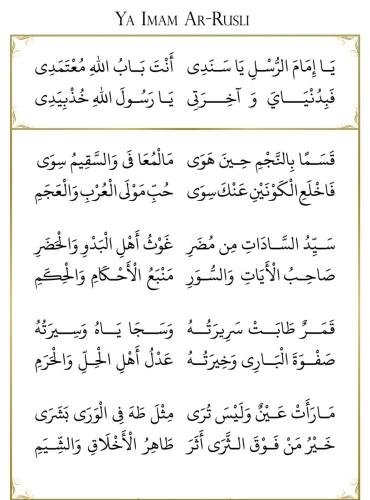 YA IMAM AR-RUSLI
يَا إِمَامَ الرُّسْلِ يَا سَنَدِى أَنْتَ بَابُ اللهِ مُعْتَمَدِى
فَبِدُنْيَايَ وَ آخِرَتِى يَا رَسُولَ اللهِ خُذْبِيَدِى
قَسَمًا بِالنَّجْمِ حِينَ هَوَى مَالْمُعَا فَى وَالسَّقِيمُ سِوَى
فَاخْلَعِ الْكَوْنَيْنِ عَنْكَ سِوَى حُبِّ مَوْلَى الْعُرْبِ وَالْعَجَمِ
سَيِّدُ السَّادَاتِ مِن مُضَرَ غَوْثُ أَهْلِ الْبَدْوِ وَالْحَضَرِ
صَاحِبُ الْأَيَاتِ وَالسُّوَرِ مَنْبَعُ الْأَحْكَامِ وَالْحِكَمِ
قَمَرٌ طَابَتْ سَرِيرَتُهُ وَسَجَا يَاهُ وَسِيرَتُهُ
صَفْوَةُ الْبَارِى وَخِيرَتُهُ عَدْلُ أَهْلِ الْحِلِّ وَالْحَرَمِ
مَارَأَتْ عَيْنٌ وَلَيْسَ تُرَى مِثْلَ طَهَ فِى الْوَرَى بَشَرَى
خَيْرُ مَنْ فَوْقَ الثَّرَى أَثَرَ طَاهِرُ الْأَخْلَاقِ وَالشِّيَمِ